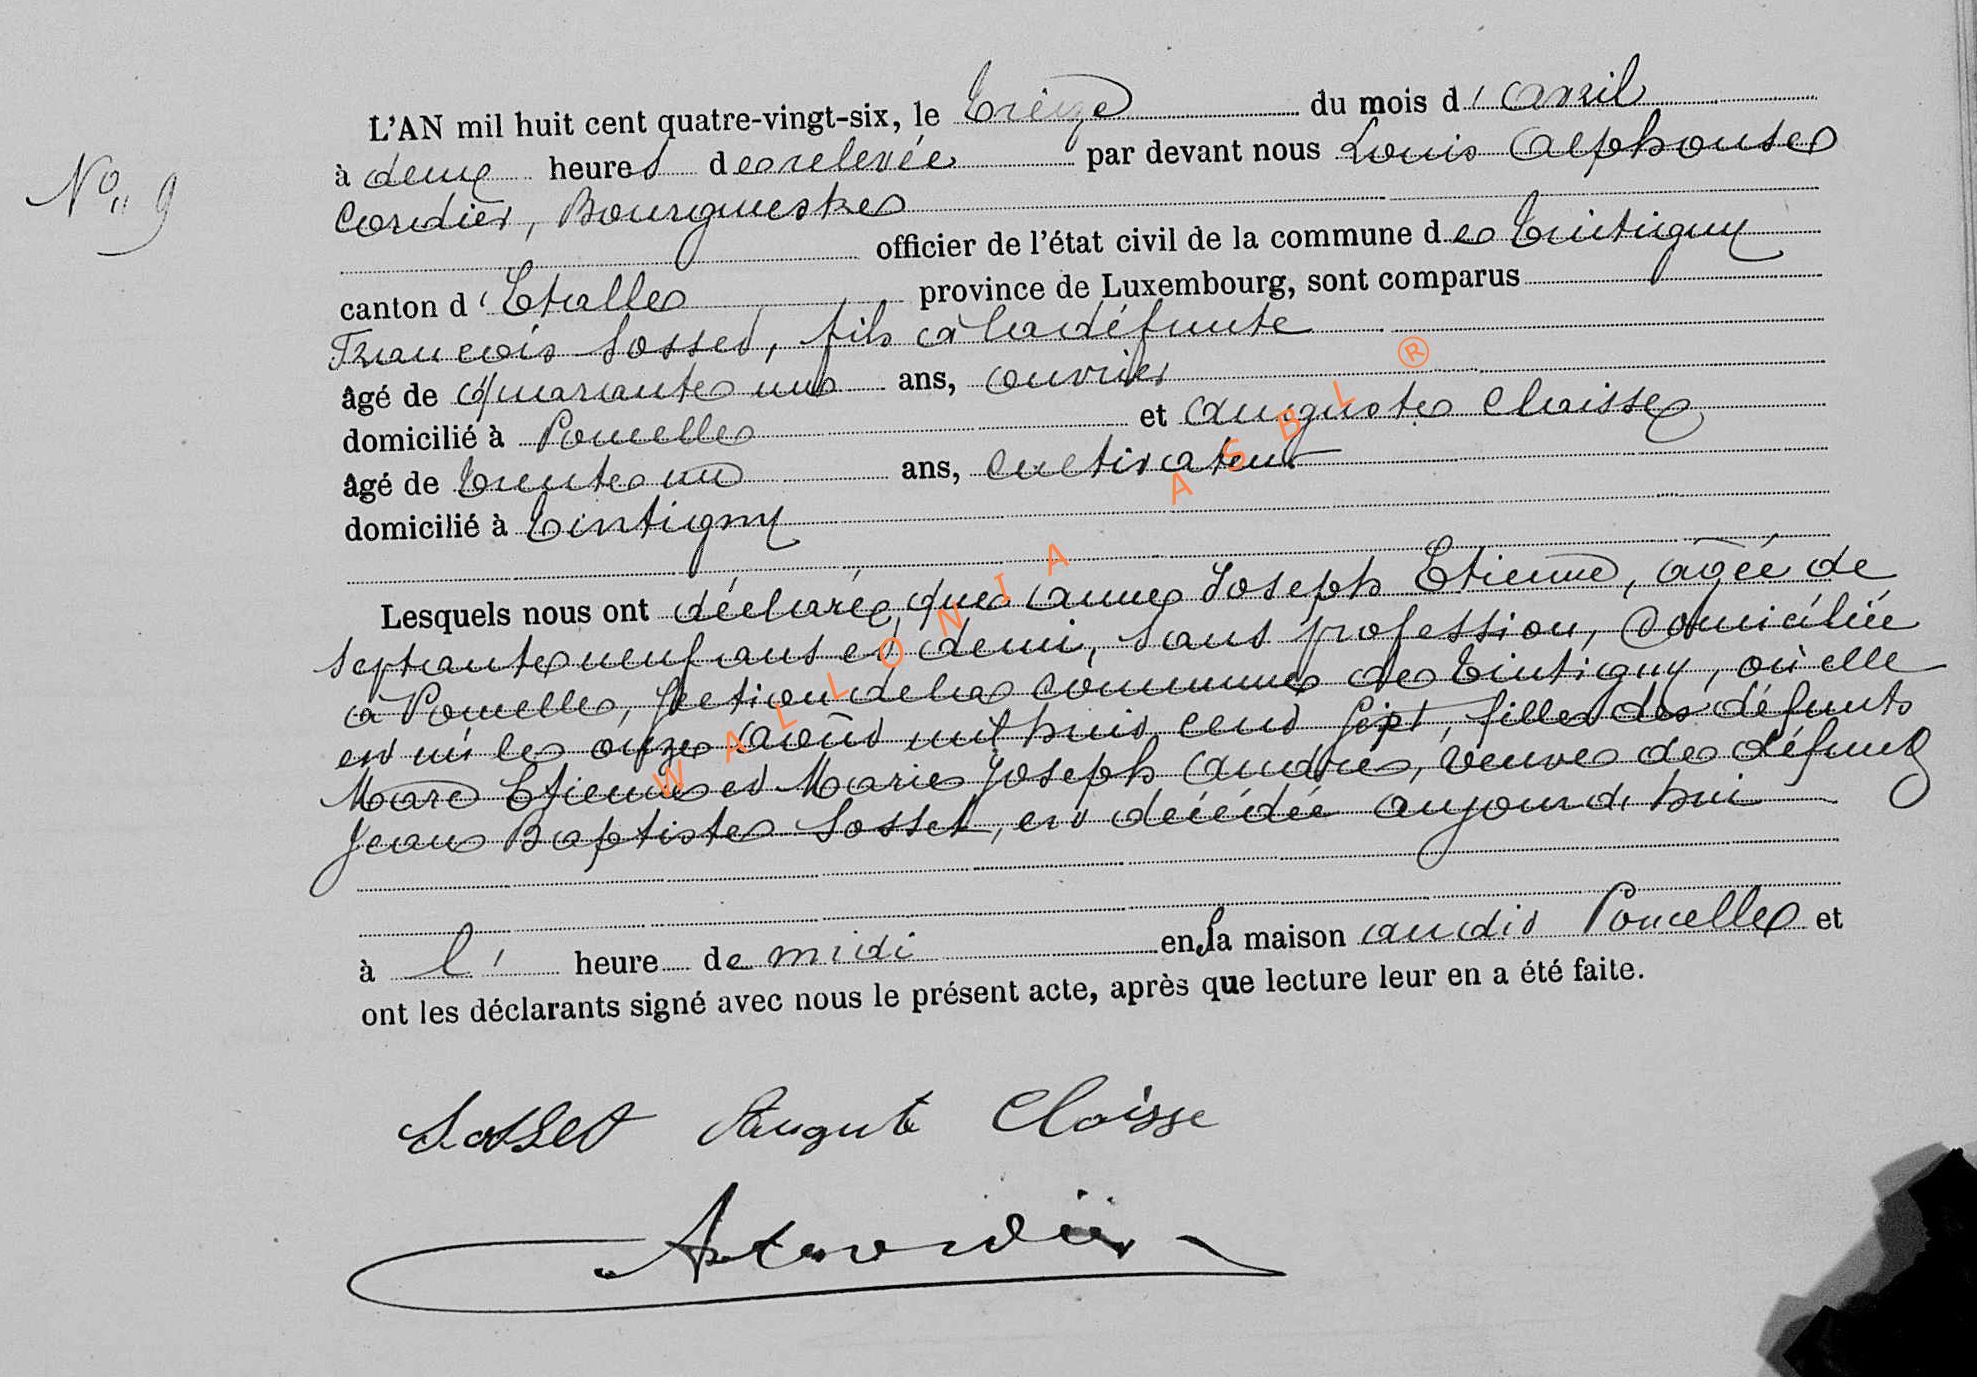 L'AN mil huit cent quatre-vingt-six, le treize du mois d'avril
No 9
à deux heures de relevée par devant nous Louis Alphonse
Cordier, Bourgmestre
officier de l'état civil de la commune de Tintigny
canton d'Etalle province de Luxembourg, sont comparus
François Sosset, fils à la défunte
âgé de quarante un ans, ouvrier
domicilié à Poncelle et Auguste Claisse
âgé de trente un ans, cultivateur
domicilié à Tintigny
Lesquels nous ont déclaré que Anne Joseph Etienne, agée de
septante neuf ans et demi, sans profession, domiciliée
à Poncelle, section de la commune de Tintigny, où elle
est née le onze août mil huit cent six, fille des défunts
Marc Etienne et Marie Joseph André, veuve de défunt
Jean Baptiste Sosset, est décédée aujourd'hui
à l' heure de midi en sa maison audit Poncelle et
ont les déclarants signé avec nous le présent acte, après que lecture leur en a été faite.
Sosset Auguste Claisse
WALLONIA ASBL ®